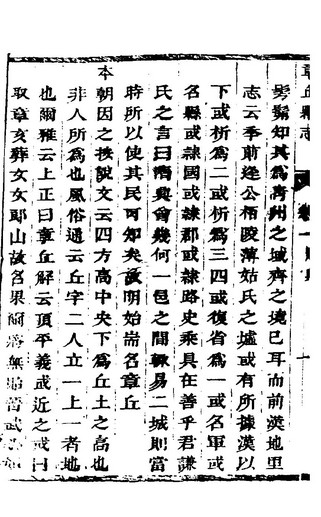 章丘縣志
卷一
髣髴知其為青州之域齊之境已耳而前漢地里
志云季前逄公栢陵薄姑氏之墟或有所據漢以
下或析為二或析為三四或復省為一或名軍或
名縣或隸國或隸郡或隸路史乘具在善乎君謙
氏之言曰會幾何一邑之間輙易二城則當
時所以使其民可知矣故明始耑名章丘
本
朝因之按說文云四方高中央下為丘土之高也
非人所為也風俗通云丘字二人立一上一者地
也爾雅云上正曰章丘解云頂平義或近之或曰
取章亥葬女女郎山故名果爾無晉武